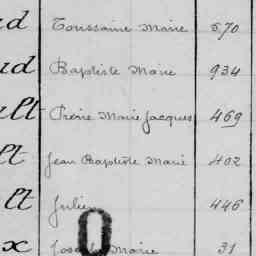 ud Toussaint Marie 670
ud Baptiste Marie 934
ult Pierre Marie Jacques 469
lt Jean Baptiste Marie 402
lt Julien 446
x Joseph Marie 31
0